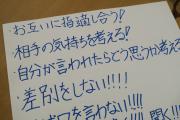 ・お互いに指摘し合う!
・相手の気持ちを考える!
・自分が言われたらどう思うか考える
・差別をしない!!!!
を言わない!!!!